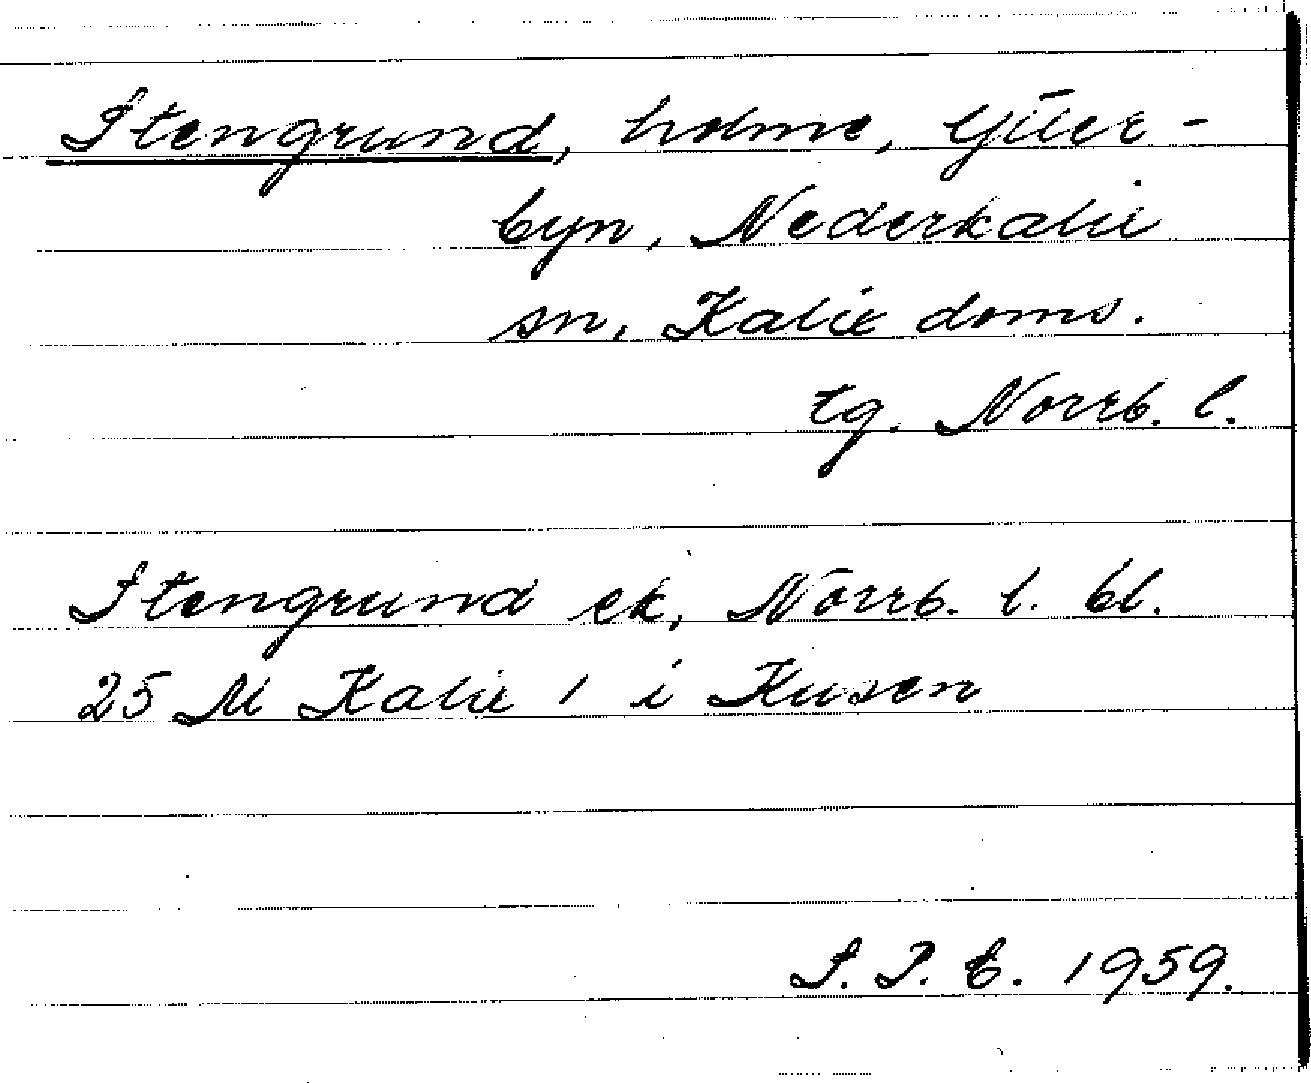 Stengrund, holme, Ytter-
byn, Nederkalix
sn, Kalix doms.
tg. Norrb. l.
Stengrund ek, Norrb. l. bl.
25 M Kalix 1 i Kusen
S. P. E. 1959.